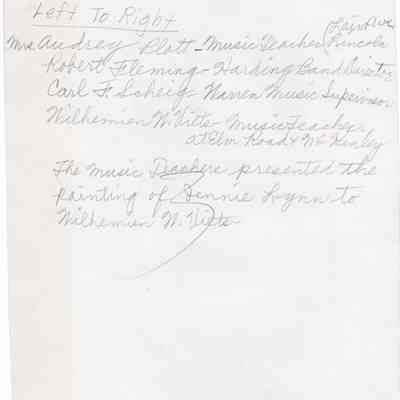 Left To Right
Mrs Audrey Platt - Music Teacher Lincoln
Robert Fleming - Harding Band Director
Carl F. Scheig Warren Music Supervisor
Wilhemien W. Vitte - Music Teacher
at Elm Road & Mc Kinley
The music Teachers presented the
painting of Jennie Lynn to
Wilhemien W. Vitte